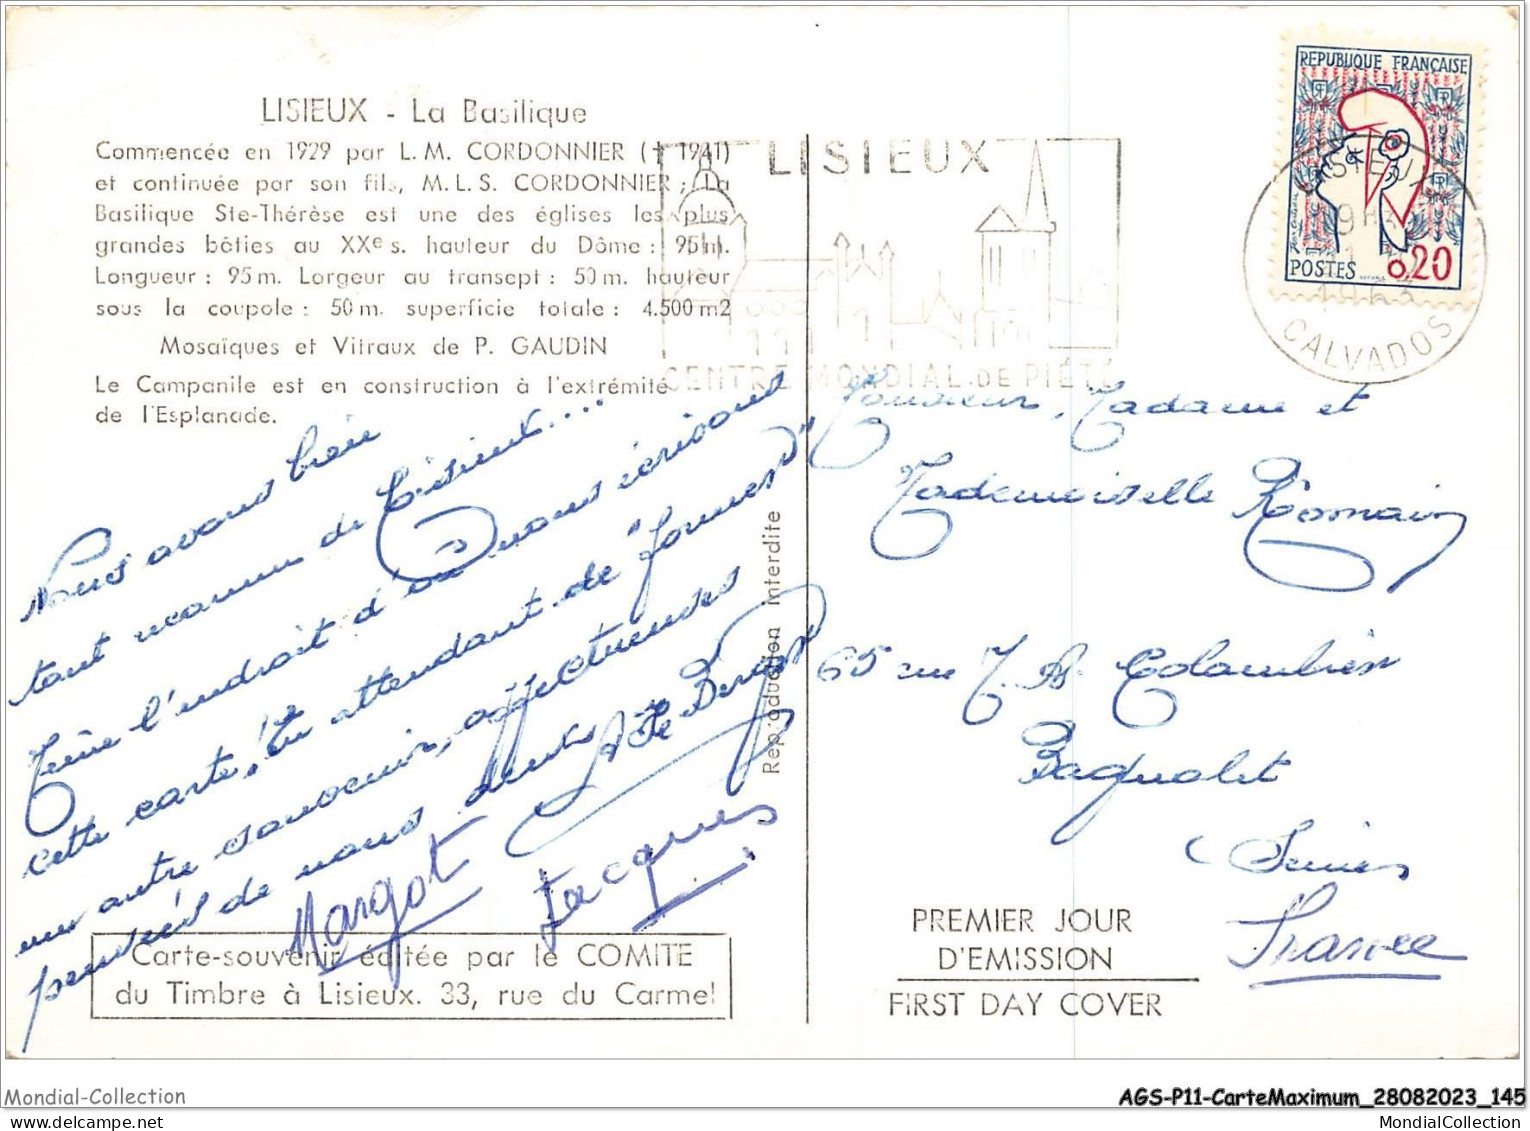 LISIEUX - La Basilique
Commencée en 1929 par L. M. CORDONNIER († 1941)
et continuée par son fils, M. L. S. CORDONNIER ; La
Basilique Ste-Thérèse est une des églises les plus
grandes bâties au XXe s. hauteur du Dôme : 95 m.
Longueur : 95 m. Largeur au transept : 50 m. hauteur
sous la coupole : 50 m. superficie totale : 4.500 m2
Mosaïques et Vitraux de P. GAUDIN
Le Campanile est en construction à l'extrémité
de l'Esplanade.
Nous avons bien
tout reconnu de Lisieux...
même l'endroit d'où nous écrivons
cette carte! En attendant de "
un autre souvenir, affectueuses
pensées de nous deux
Margot
Jacques
Carte-souvenir éditée par le COMITE
du Timbre à Lisieux. 33, rue du Carmel
Reproduction interdite
LISIEUX
CENTRE MONDIAL DE PIÉTÉ
REPUBLIQUE FRANÇAISE
POSTES 0,20
LISIEUX
19H
1963
CALVADOS
Monsieur, Madame et
Mademoiselle Romain
65 rue
Bagnolet
(Seine)
France
PREMIER JOUR
D'EMISSION
FIRST DAY COVER
Mondial-Collection
AGS-P11-CarteMaximum_28082023_145
MondialCollection.com